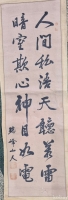 人間私語天聽若雷
暗室欺心神目如電